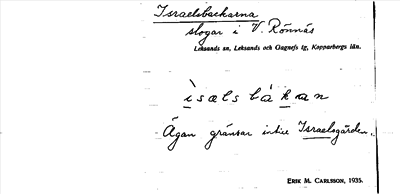 Israelsbackarna
slogar i V. Rönnäs
Leksands sn, Leksands och Gagnefs tg, Kopparbergs län.
ìsæls bákan
Ägan gränsar intill Israelsgården.
ERIK M. CARLSSON, 1935.